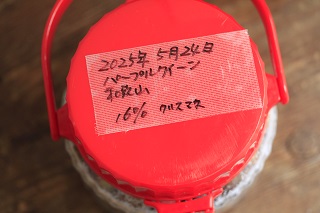 2025年 5月24日
パープルクイーン
和歌山
16% クリスマス